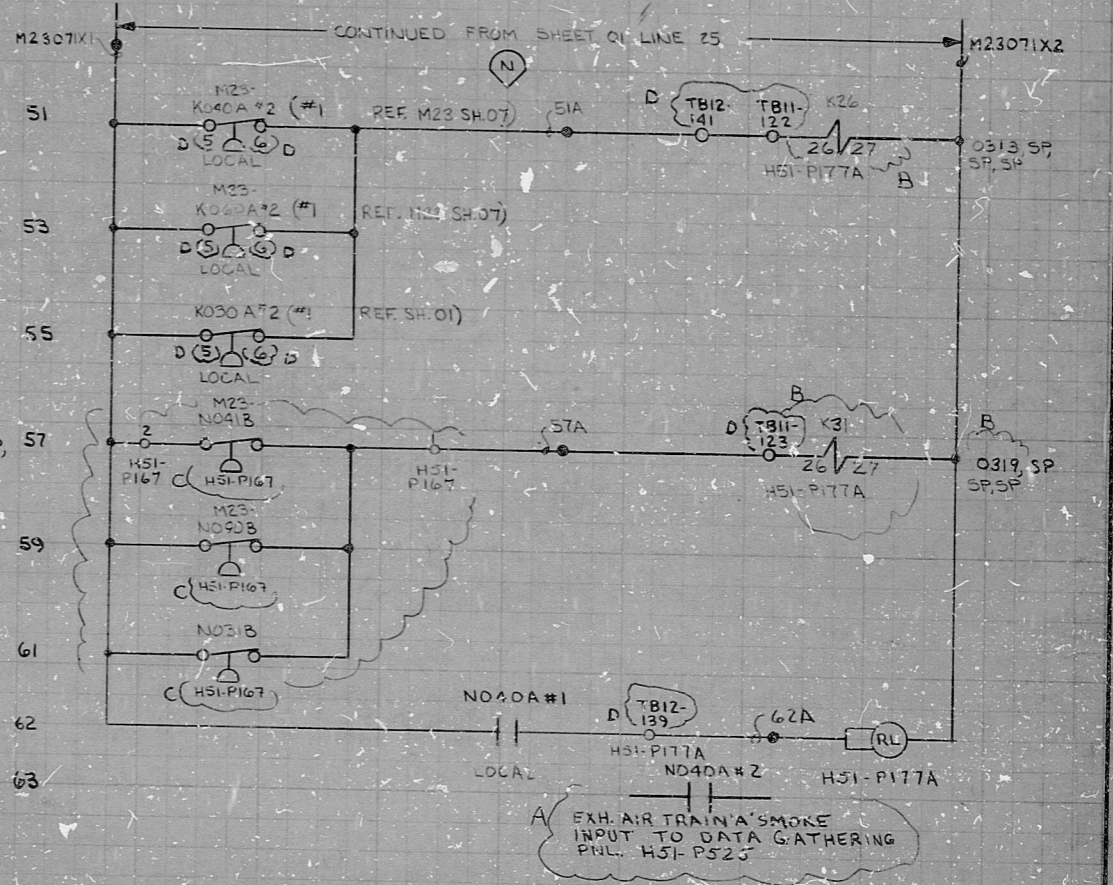 CONTINUED FROM SHEET 01 LINE 25
M23071X1
M23071X2
N
51
M23-
K040A #2 (#1 REF. M23 SH.07)
D (5 6) D
LOCAL
51A
D
TB12-
141
TB11-
122
K26
26 27
H51-P177A
B
0313, SP,
SP, SP
53
M23-
K060A #2 (#1 REF. M23 SH.07)
D (5 6) D
LOCAL
55
K030A #2 (#1 REF. SH.01)
D (5) (6) D
LOCAL
57
2
H51-
P167
M23-
N041B
C (H51-P167)
H51-
P167
57A
D
TB11-
123
B
K31
26 27
H51-P177A
B
0319, SP
SP, SP
59
M23-
C (H51-P167)
61
N031B
C (H51-P167)
62
N040A #1
LOCAL
D
TB12-
139
H51-P177A
62A
RL
H51-P177A
63
N040A #2
A
EXH. AIR TRAIN 'A' SMOKE
INPUT TO DATA GATHERING
PNL. H51-P525